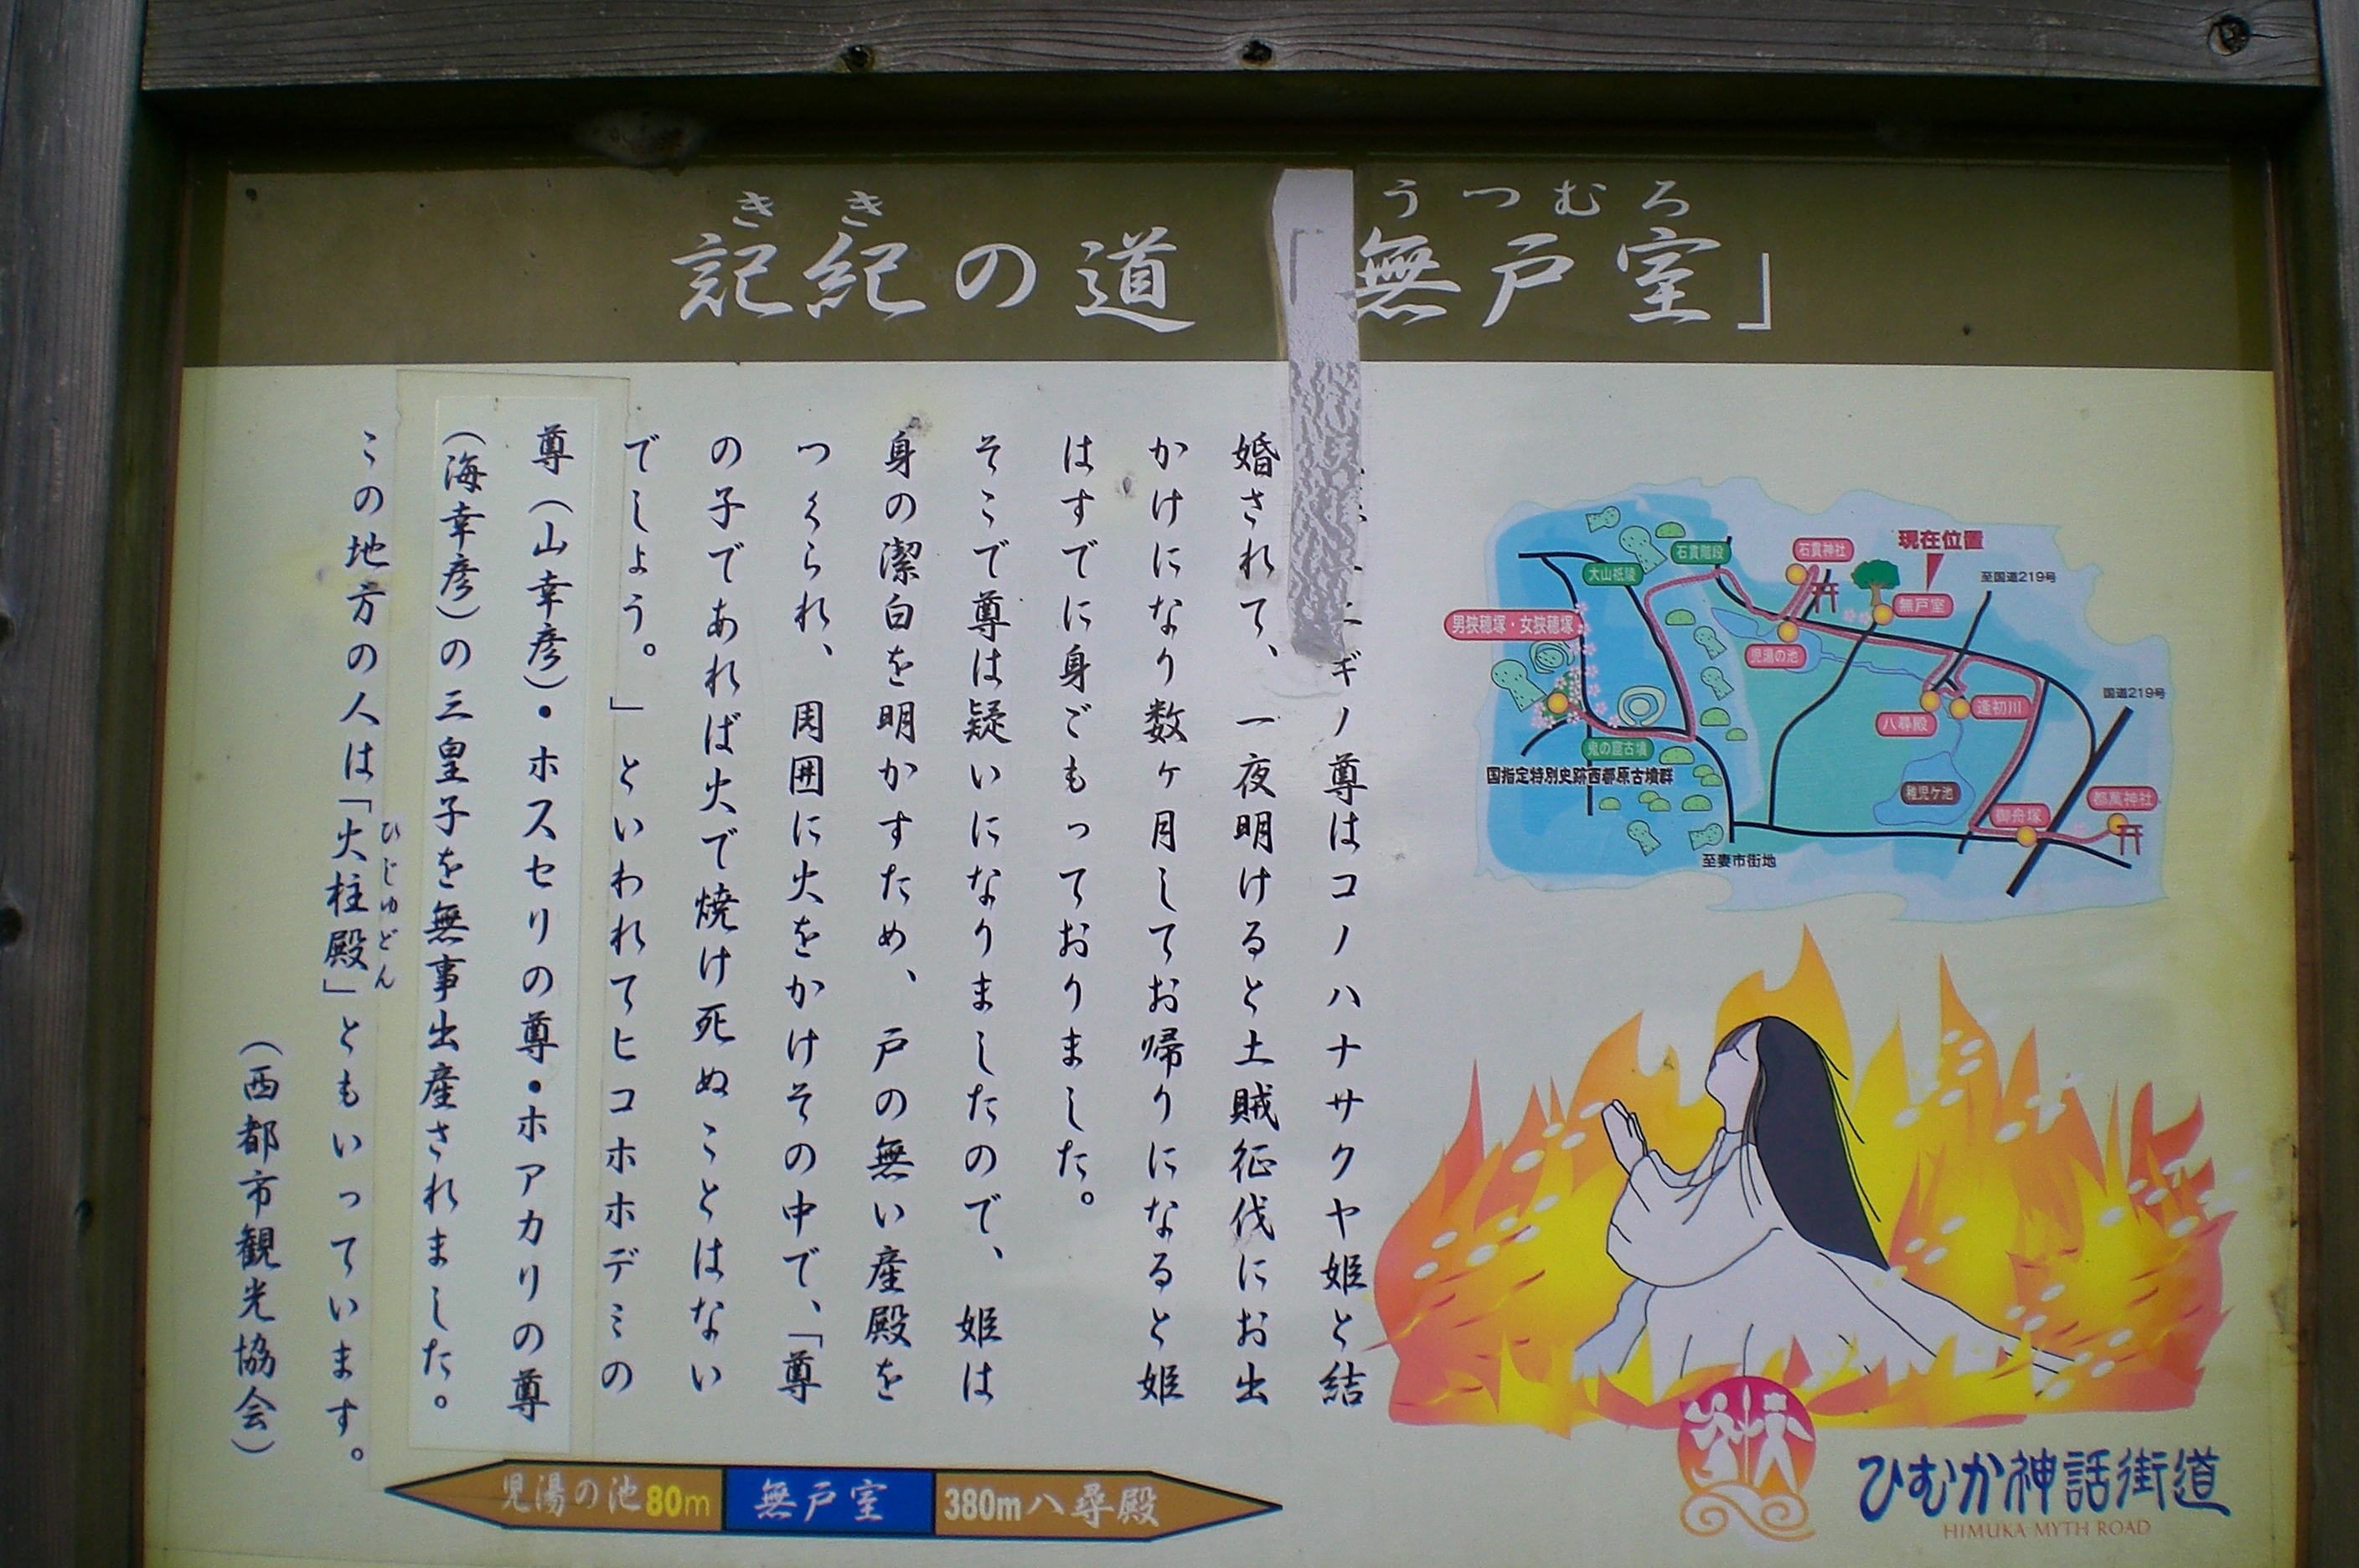 うつむろ
きき
記紀の道「無戸室」
ギノ尊はコノハナサクヤ姫と結
婚されて、一夜明けると土賊征伐にお出
かけになり数ヶ月してお帰りになると姫
はすでに身ごもっておりました。
そこで尊は疑いになりましたので、姫は
身の潔白を明かすため、戸の無い産殿を
つくられ、周囲に火をかけその中で、「尊
の子であれば火で焼け死ぬことはない
でしょう。」といわれてヒコホホデミの
尊(山幸彦)・ホスセリの尊・ホアカリの尊
(海幸彦)の三皇子を無事出産されました。
この地方の人は「火柱殿」ともいっています。
ひじゅどん
(西都市観光協会)
現在位置
石貫階段
石貫神社
大山祇陵
至国道219号
無戸室
男狭穂塚・女狭穂塚
児湯の池
国道219号
逢初川
八尋殿
鬼の窟古墳
国指定特別史跡西都原古墳群
稚児ケ池
都萬神社
御舟塚
至妻市街地
児湯の池80m
無戸室
380m八尋殿
ひむか神話街道
HIMUKA MYTH ROAD